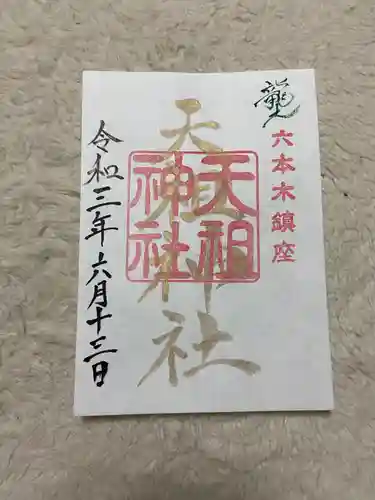 龍
六本木鎮座
天祖神社
天祖
神社
令和三年六月十三日